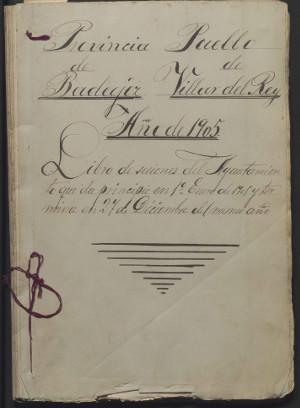 Provincia Pueblo
de de
Badajoz Villar del Rey
Año de 1905
Libro de sesiones del Ayuntamien-
to que da principio en 1º Enero de 1905 y ter-
mina en 27 de Diciembre del mismo año